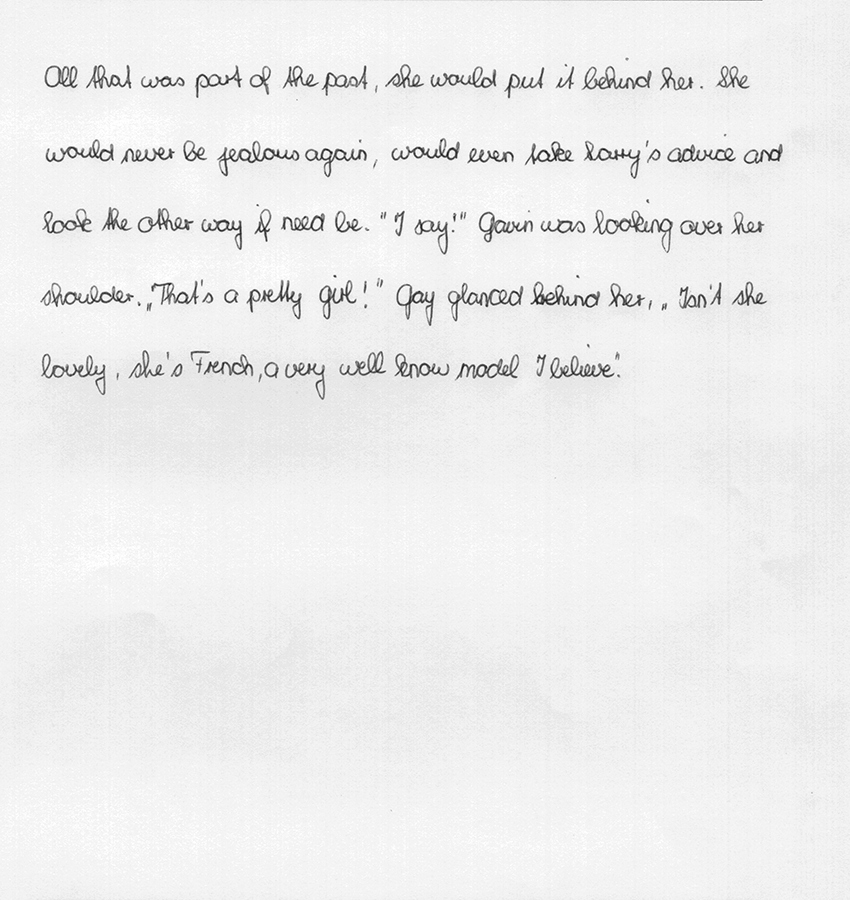 All that was part of the past, she would put it behind her. She
would never be jealous again, would even take Larry's advice and
look the other way if need be. "I say!" Gavin was looking over her
shoulder. „That's a pretty girl!" Gay glanced behind her, „ Isn't she
lovely, she's French, a very well know model I believe".